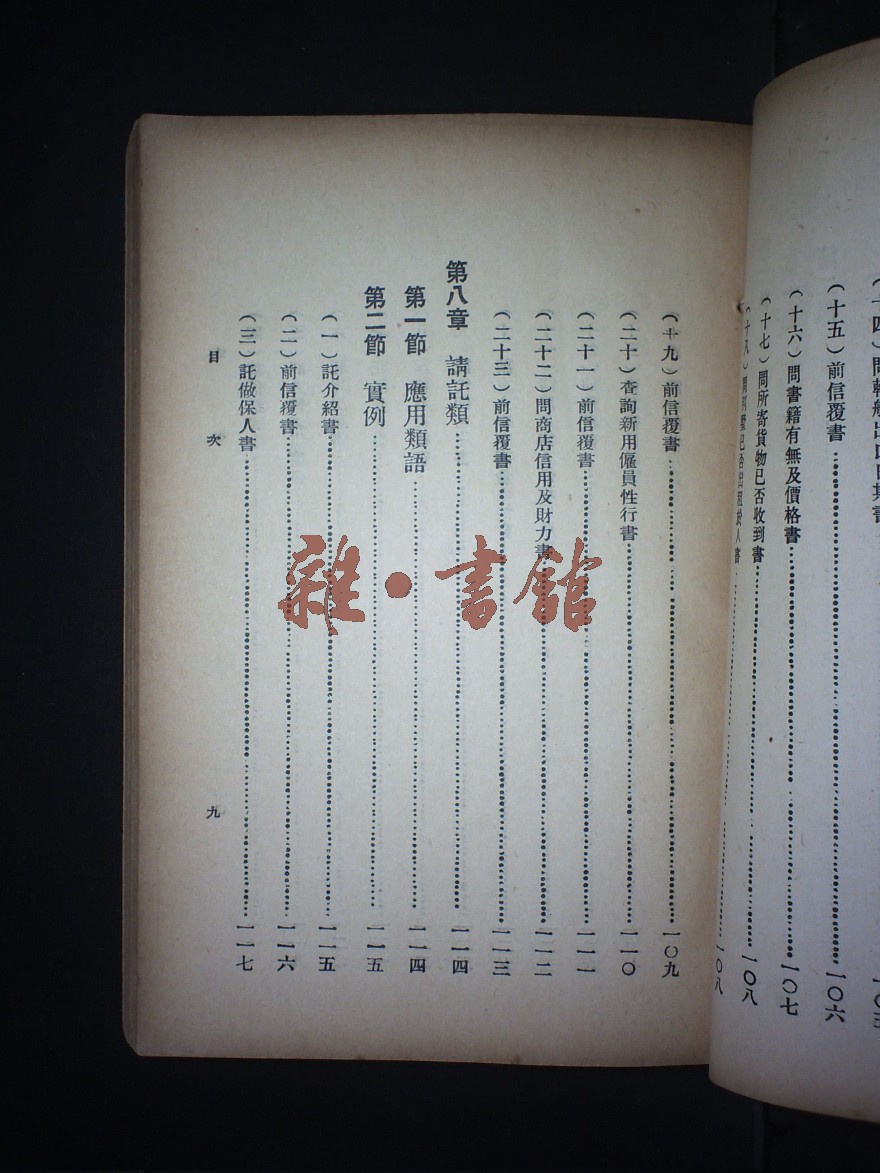 (十五)前信覆書……一〇六
(十六)問書籍有無及價格書……一〇七
(十七)問所寄貨物已否收到書……一〇八
(十九)前信覆書……一〇九
(二十)查詢新用僱員性行書……一一〇
(二十一)前信覆書……一一一
(二十二)問商店信用及財力書……一一二
(二十三)前信覆書……一一三
第八章 請託類……一一四
第一節 應用類語……一一四
第二節 實例……一一五
(一)託介紹書……一一五
(二)前信覆書……一一六
(三)託做保人書……一一七
目次 九
雜·書館